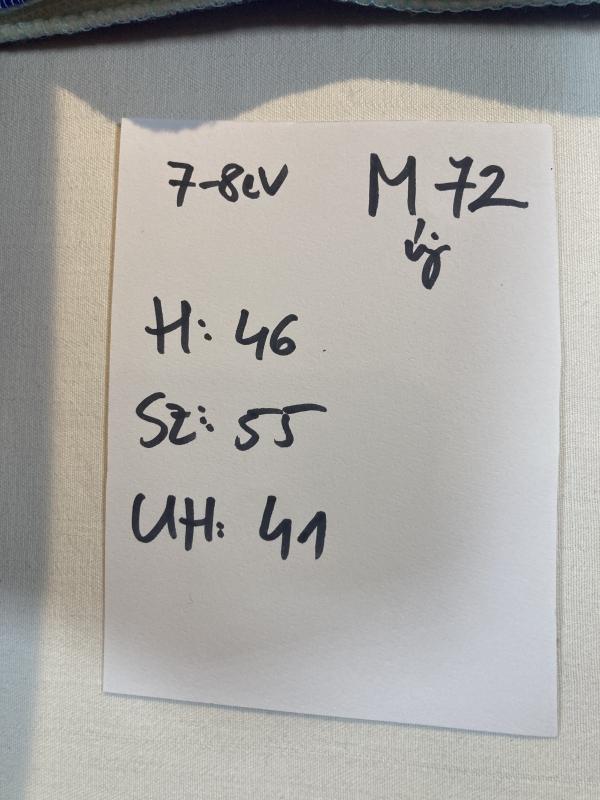 7-8év M 72
új
H: 46
Sz: 55
UH: 41